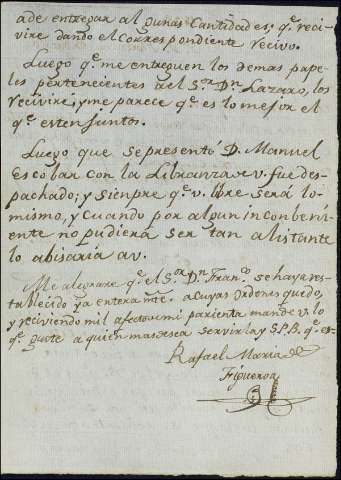 ade entregar al gunas Cantidades; q.e reci-
vire dando el Correspondiente recivo.
Luego q.e me entreguen los demas pape
les pertenecientes al S.or D.n Lazaro, los
recivire; y me parece q.e es lo mejor el
q.e esten juntos.
Luego que se presentó D. Manuel
Escobar con la Libranza de v. fue des-
pachado; y siempre q.e v. libre será lo
mismo, y cuando por algun inconbeni
ente no pudiera ser tan al istante
lo abisaria a v.
Me alegrare q.e el S.or D.n Fran.co se haya res-
tablecido ya entera m.te a cuyas ordenes quedo,
y reciviendo mil afectos de mi parienta mande v. lo
q.e guste a quien mas desea servirla y S.P.B. q.e es-
Rafael Maria de
Figueroa